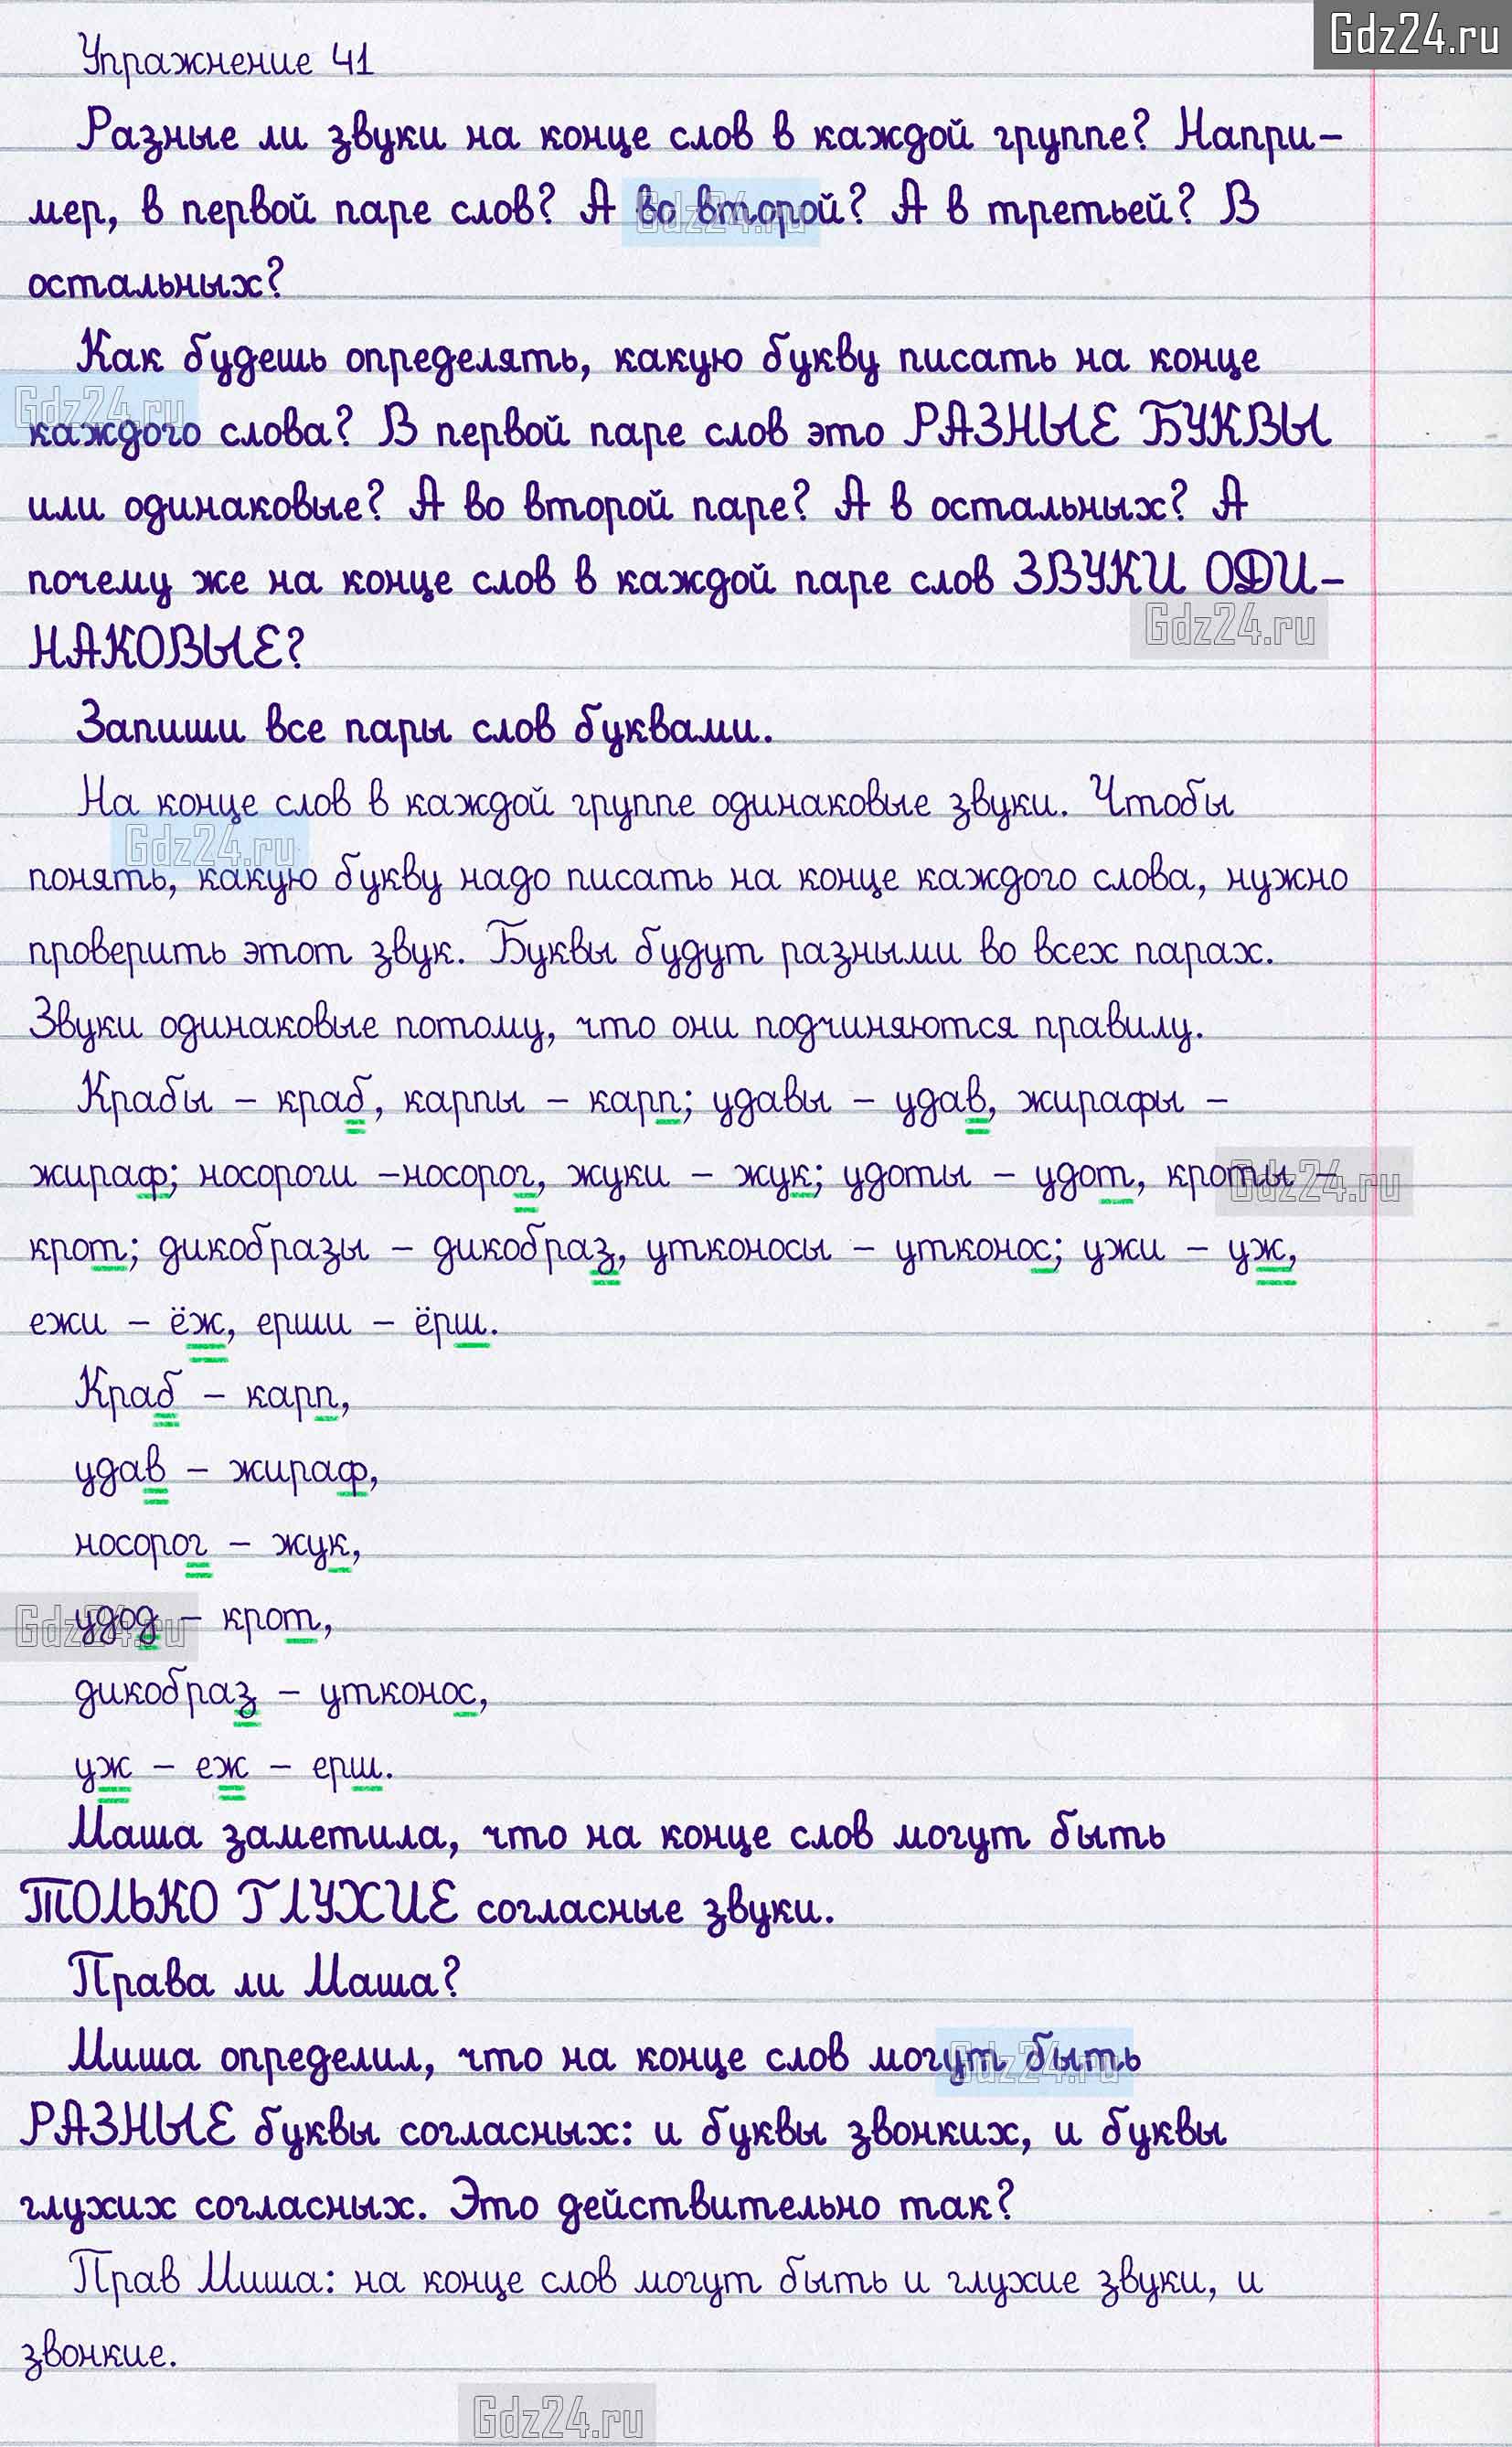 Gdz24.ru
Упражнение 41
Разные ли звуки на конце слов в каждой группе? Напри-
мер, в первой паре слов? А во второй? А в третьей? В
Gdz24.ru
остальных?
Как будешь определять, какую букву писать на конце
Gdz24.ru
каждого слова? В первой паре слов это РАЗНЫЕ БУКВЫ
или одинаковые? А во второй паре? А в остальных? А
почему же на конце слов в каждой паре слов ЗВУКИ ОДИ-
Gdz24.ru
НАКОВЫЕ?
Запиши все пары слов буквами.
На конце слов в каждой группе одинаковые звуки. Чтобы
Gdz24.ru
понять, какую букву надо писать на конце каждого слова, нужно
проверить этот звук. Буквы будут разными во всех парах.
Звуки одинаковые потому, что они подчиняются правилу.
Крабы – краб, карпы – карп; удавы – удав, жирафы –
жираф; носороги –носорог, жуки – жук; удоты – удот, кроты –
Gdz24.ru
крот; дикобразы – дикобраз, утконосы – утконос; ужи – уж,
ежи – ёж, ерши – ёрш.
Краб – карп,
удав – жираф,
носорог – жук,
удод – крот,
Gdz24.ru
дикобраз – утконос,
уж – еж – ерш.
Маша заметила, что на конце слов могут быть
ТОЛЬКО ГЛУХИЕ согласные звуки.
Права ли Маша?
Миша определил, что на конце слов могут быть
Gdz24.ru
РАЗНЫЕ буквы согласных: и буквы звонких, и буквы
глухих согласных. Это действительно так?
Прав Миша: на конце слов могут быть и глухие звуки, и
звонкие.
Gdz24.ru